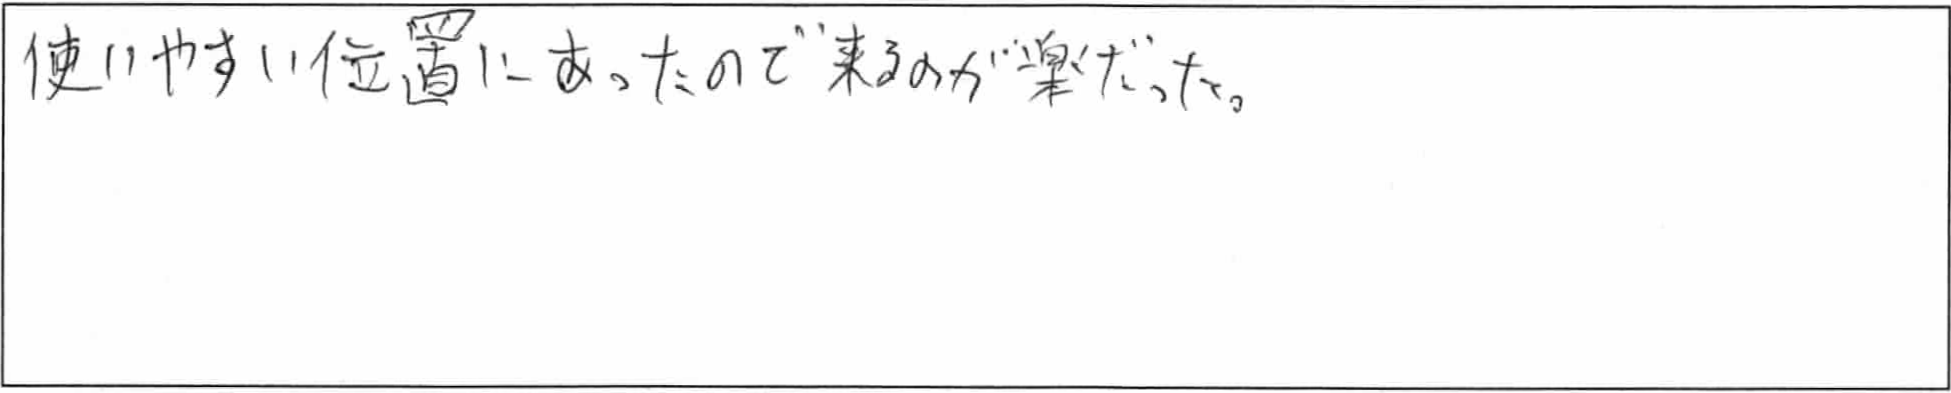 使いやすい位置にあったので来るのが楽だった。